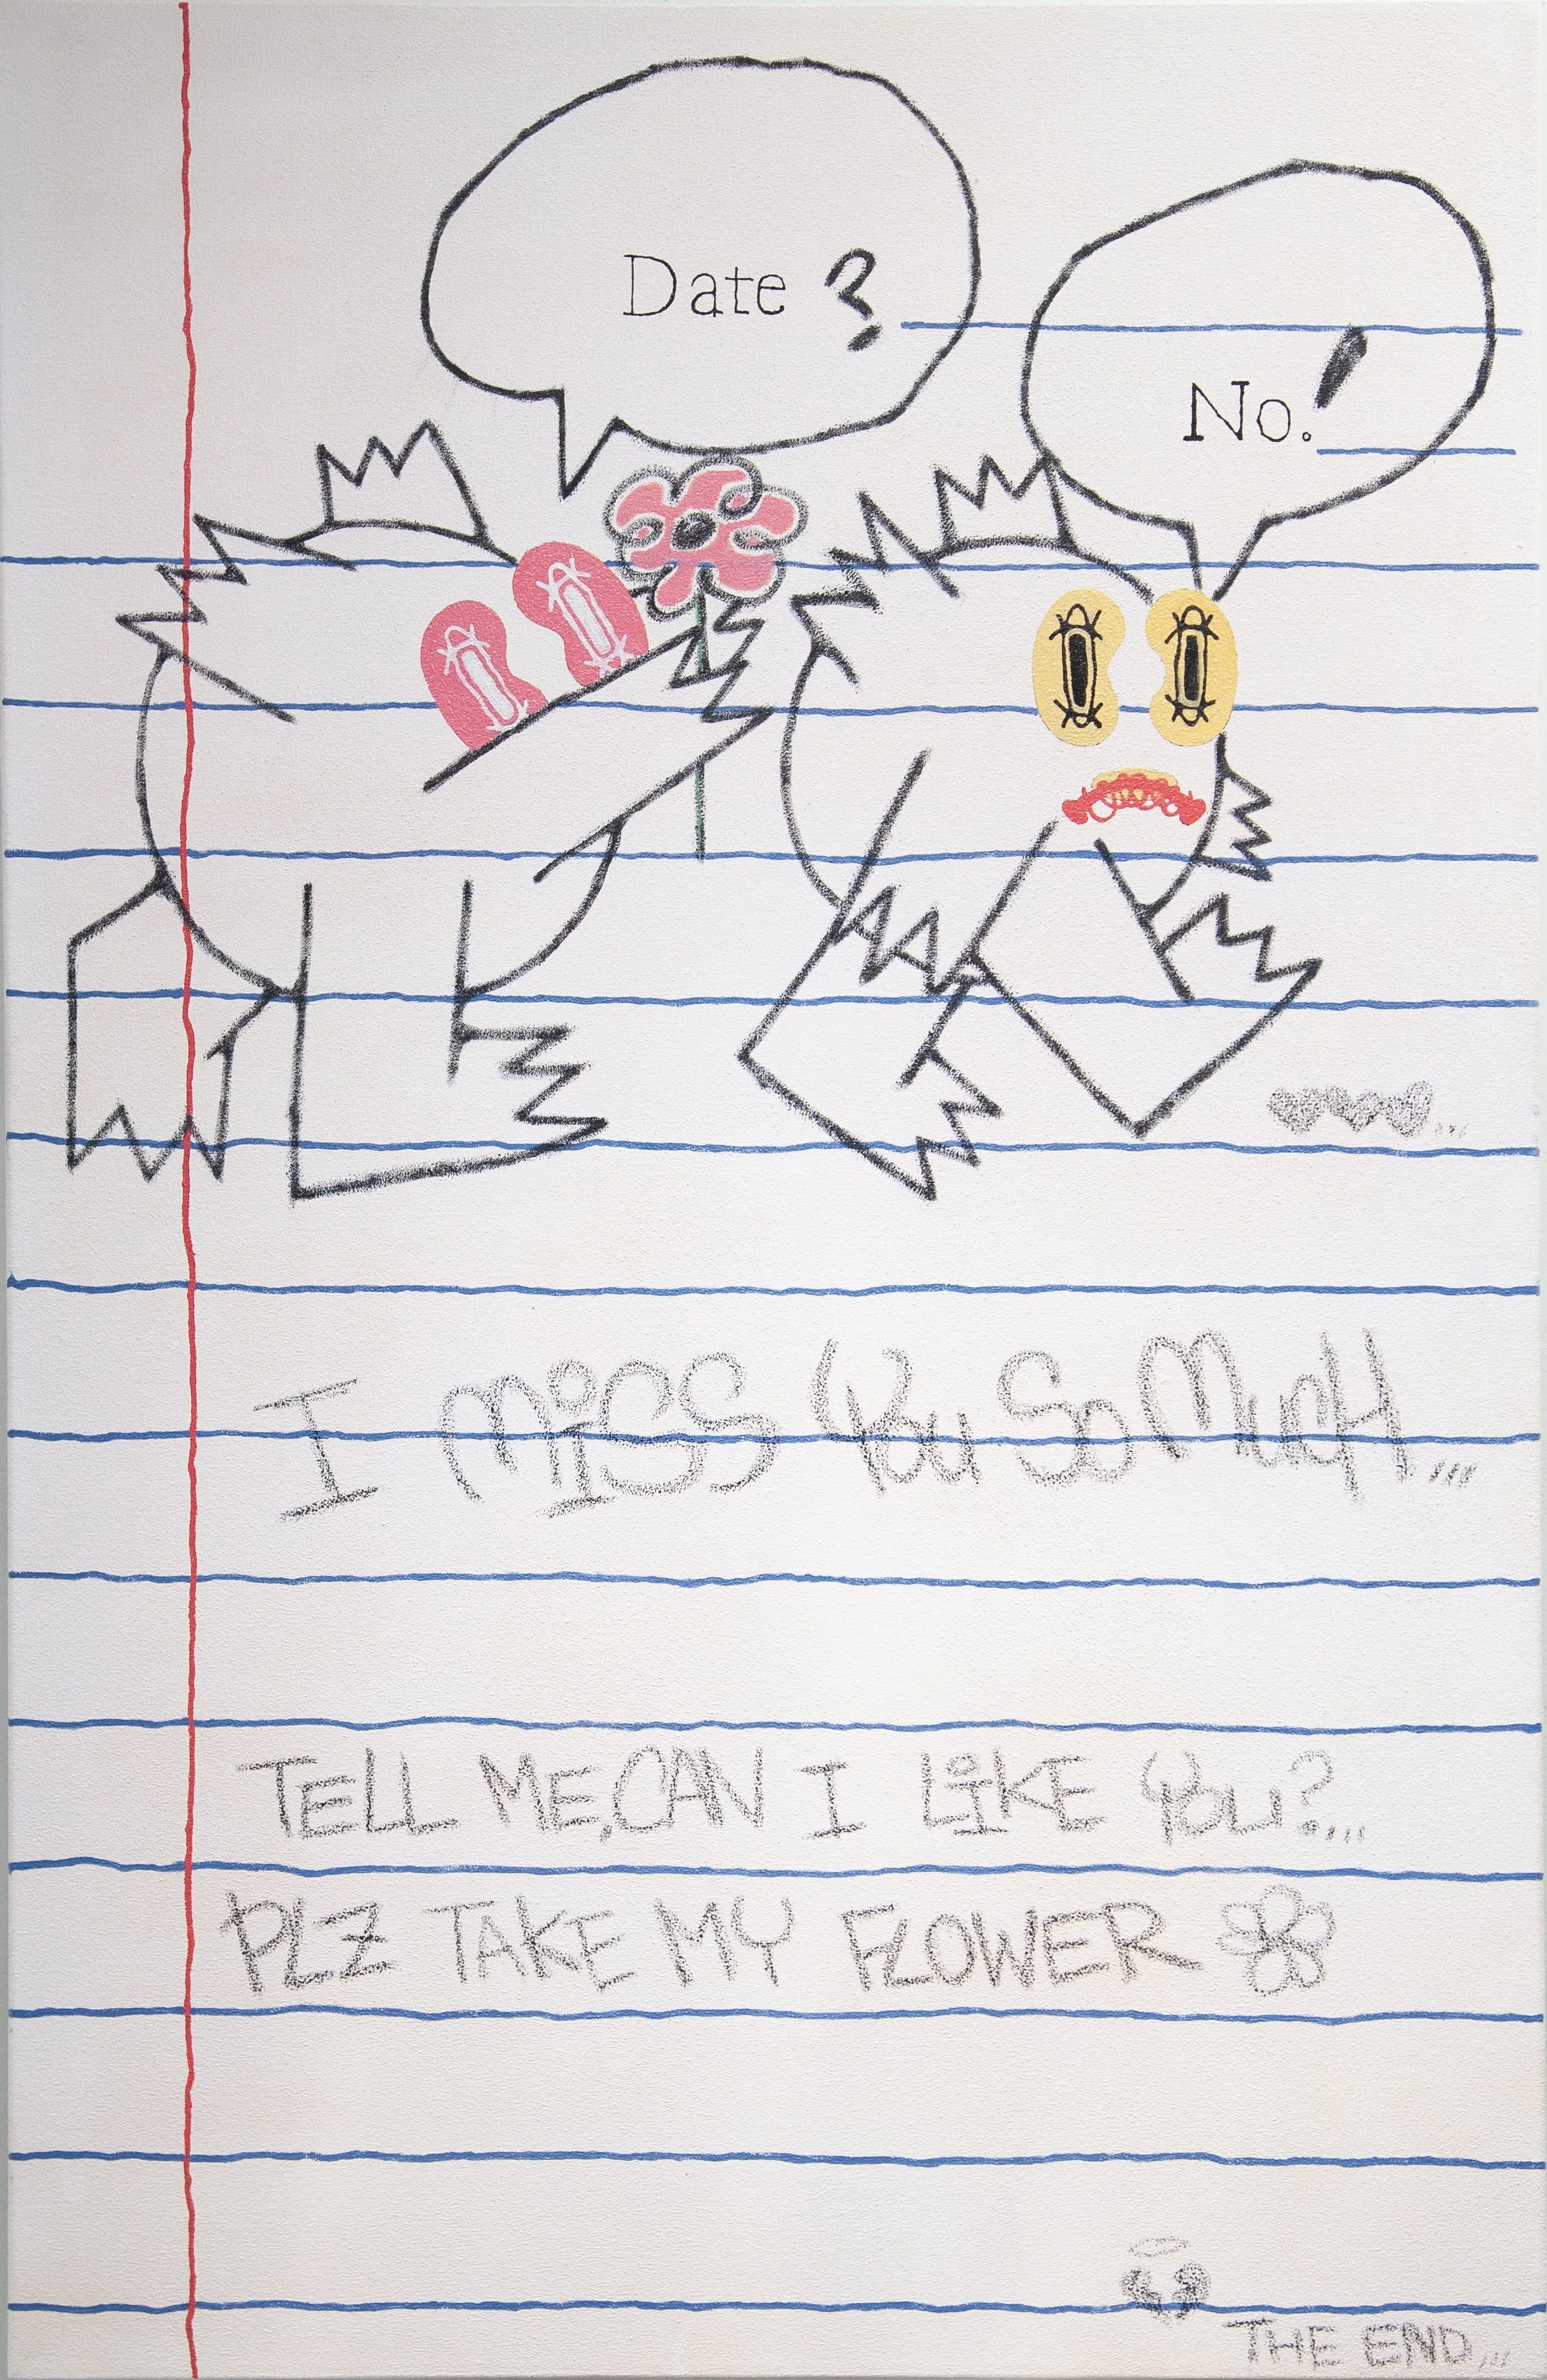 Date ?
No.!
I MiSS You So MucH...
TELL ME,CAN I LiKE You?...
PLZ TAKE MY FLOWER
THE END...